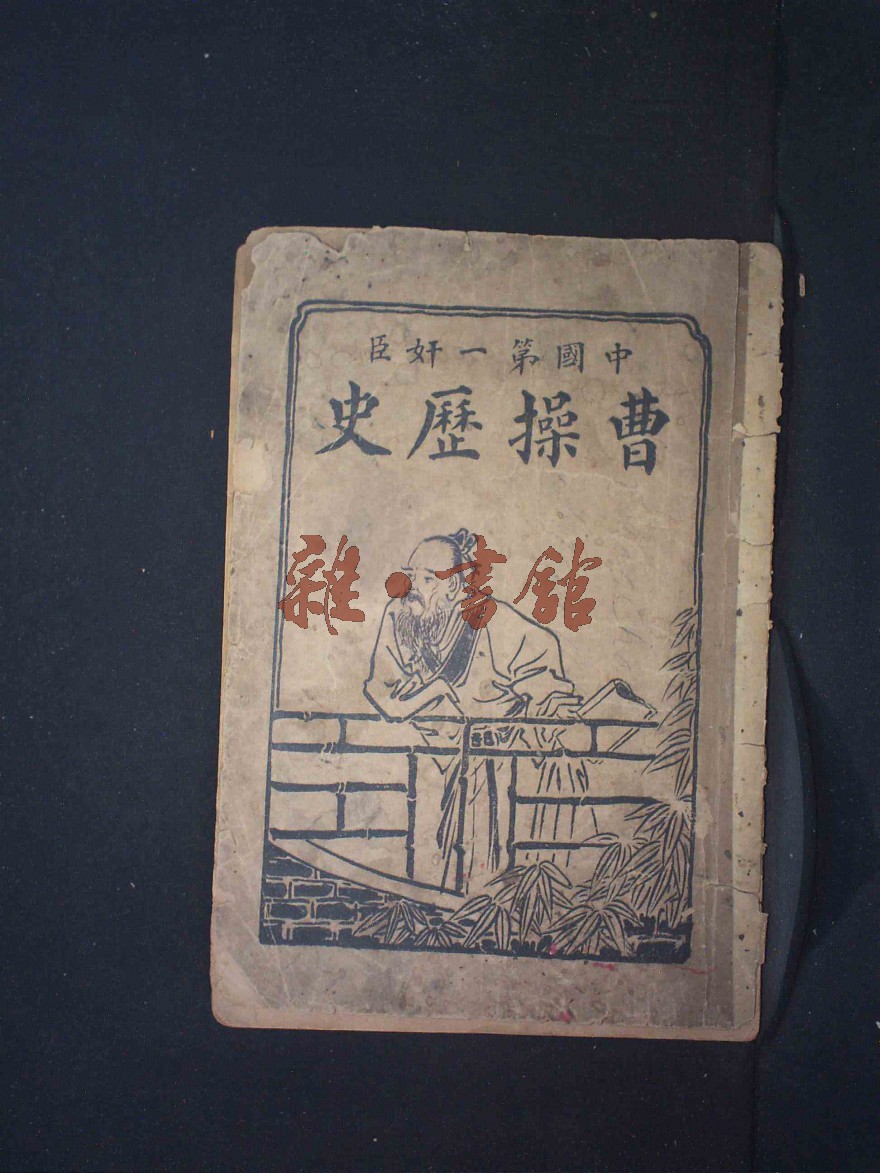 中國第一奸臣
曹操歷史
雜·書館